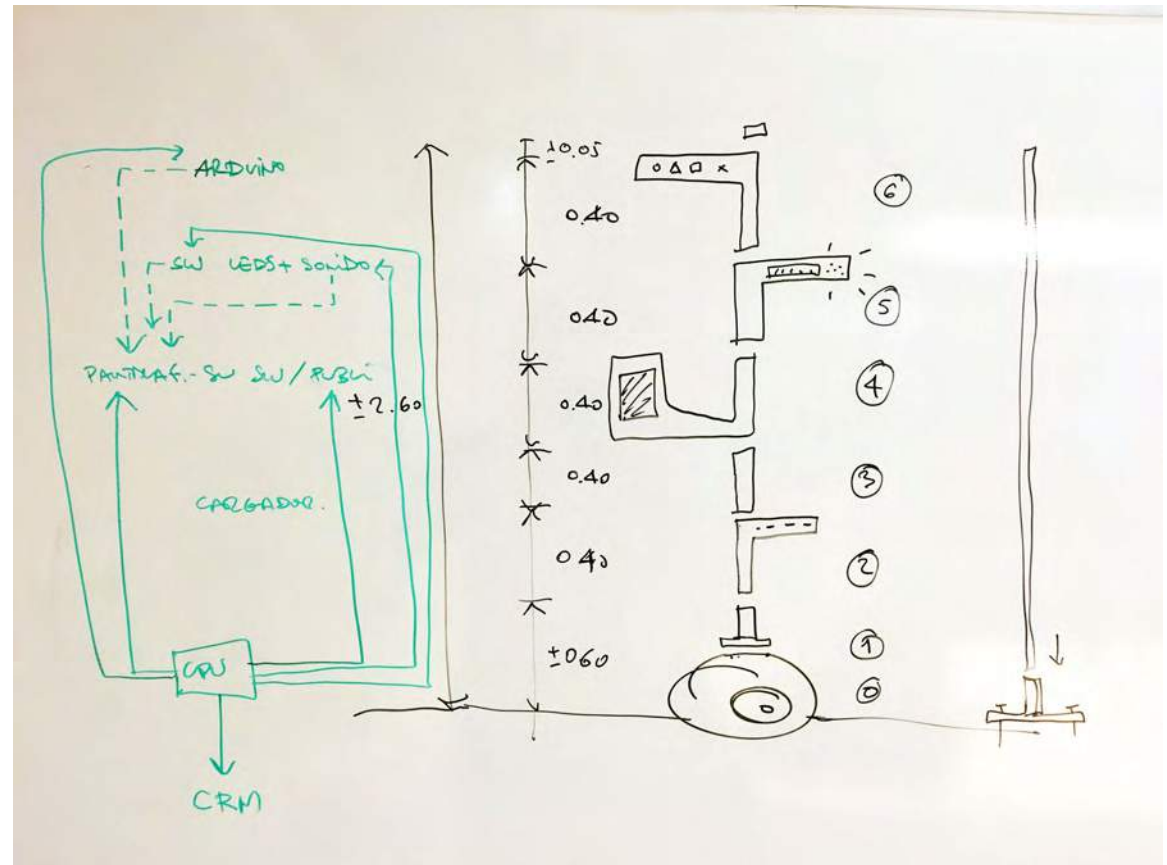 ARDUINO
SW LEDS + SONIDO
SW SW / PUBLI
±2.60
CARGADOR.
CPU
CRM
±0.05
0.40
0.40
0.40
0.40
0.40
±0.60
6
5
4
3
2
1
0